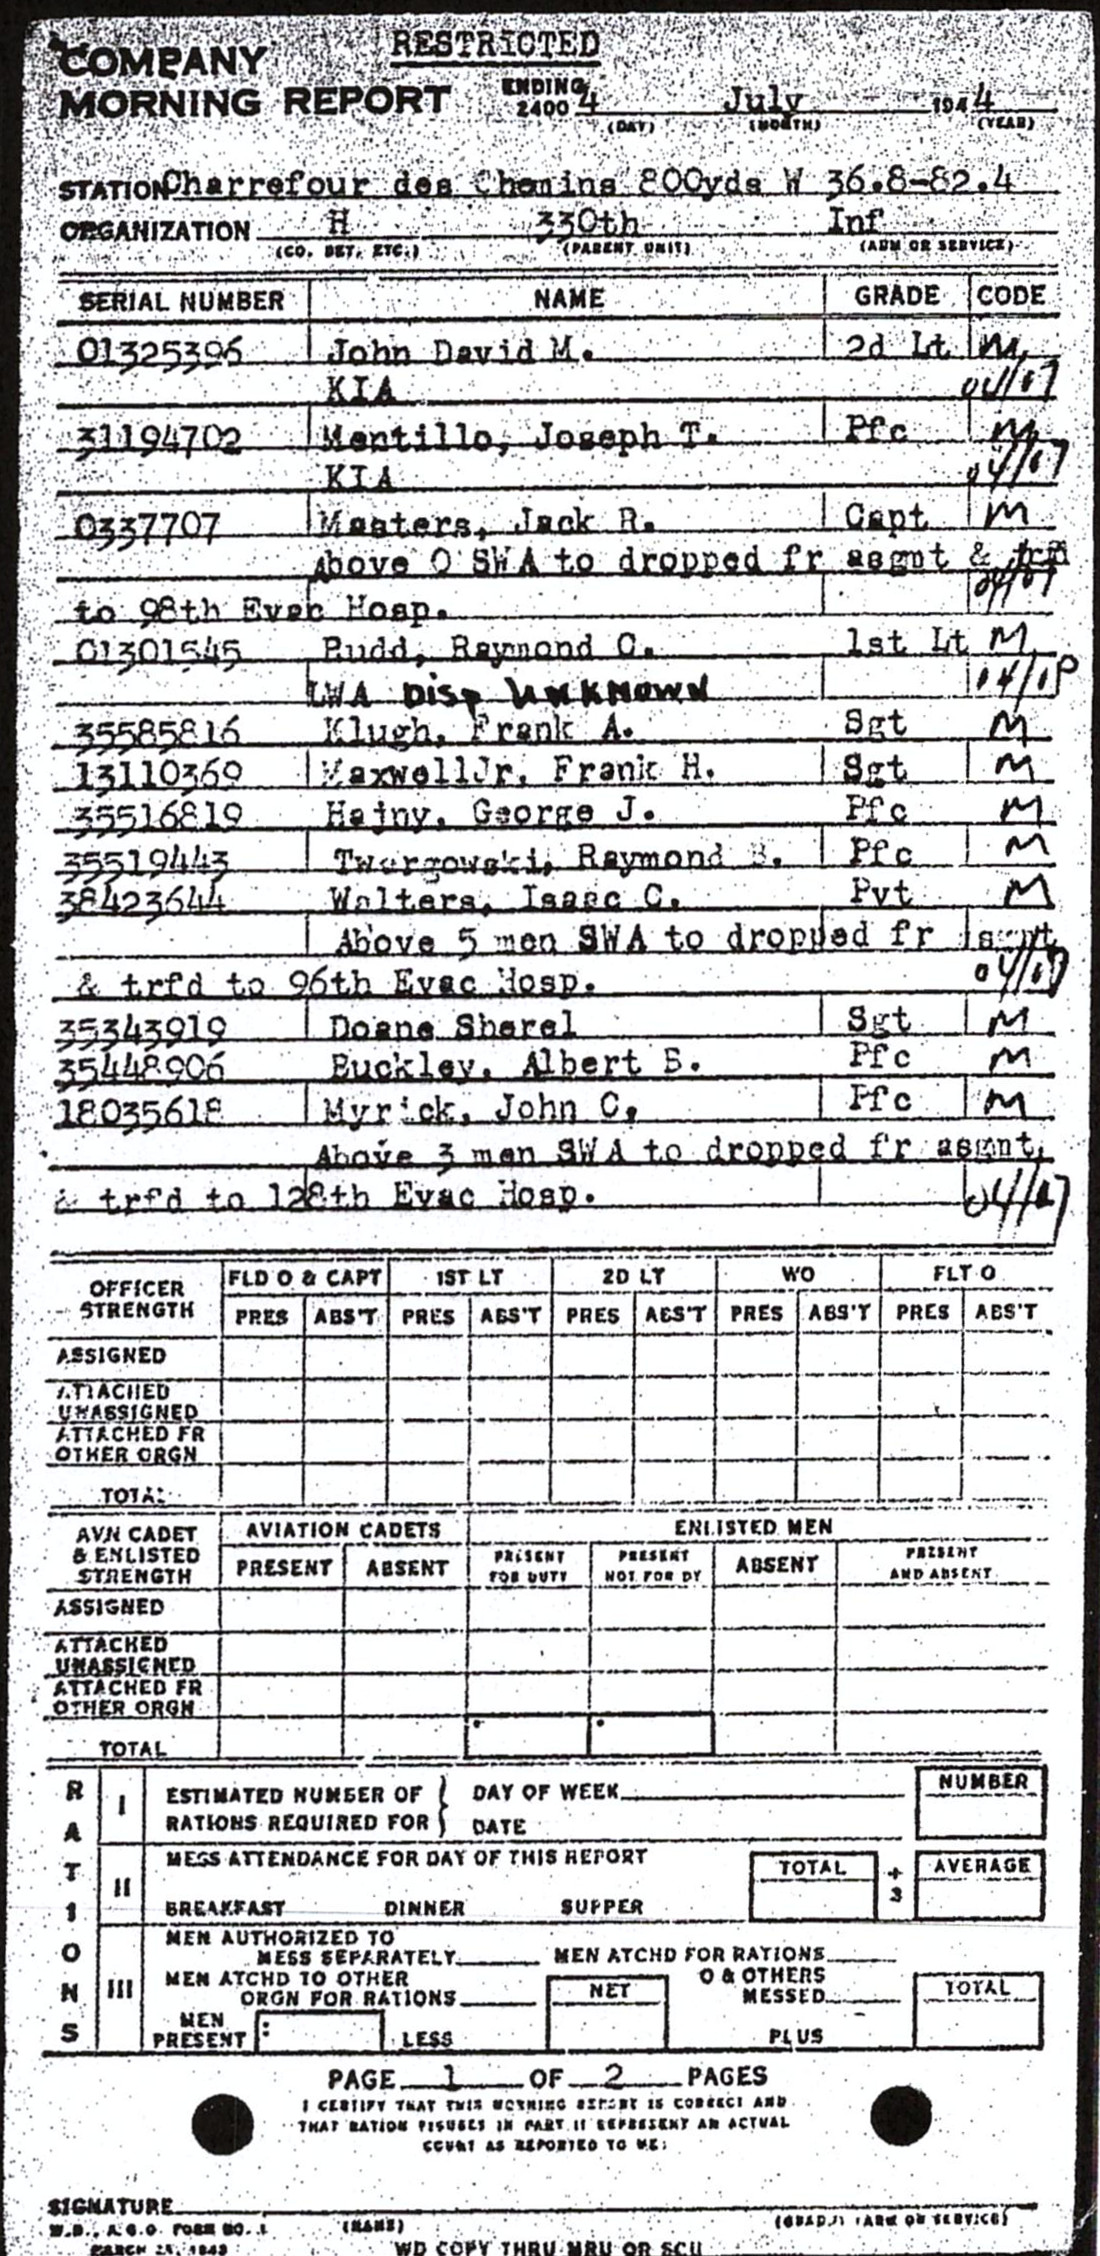 RESTRICTED
COMPANY
MORNING REPORT ENDING 2400 4 July 1944
(DAY) (MONTH) (YEAR)
STATION Charrefour des Chemins 800yds W 36.8-82.4
ORGANIZATION H 330th Inf
(CO. DET. ETC.) (PARENT UNIT) (ARM OR SERVICE)
SERIAL NUMBER NAME GRADE CODE
01325396 John David M. 2d Lt M
KIA 04/07
31194702 Mentillo, Joseph T. Pfc M
KIA 04/07
0337707 Masters, Jack R. Capt M
Above O SWA to dropped fr asgnt & trfd
to 98th Evac Hosp. 04/07
01301545 Rudd, Raymond C. 1st Lt M
LWA Disp UNKNOWN
35585816 Klugh, Frank A. Sgt M
13110369 MaxwellJr, Frank H. Sgt M
35516819 Hajny, George J. Pfc M
35519443 Twargowski, Raymond B. Pfc M
38423644 Walters, Isaac C. Pvt M
Above 5 men SWA to dropped fr asgnt
& trfd to 96th Evac Hosp. 04/07
35343919 Doane Sherel Sgt M
35448906 Buckley, Albert B. Pfc M
18035618 Myrick, John C. Pfc M
Above 3 men SWA to dropped fr asgnt,
& trfd to 128th Evac Hosp. 04/07
OFFICER STRENGTH FLD O & CAPT 1ST LT 2D LT WO FLT O
PRES ABS'T PRES ABS'T PRES ABS'T PRES ABS'T PRES ABS'T
ASSIGNED
ATTACHED
UNASSIGNED
ATTACHED FR
OTHER ORGN
TOTAL
AVN CADET & ENLISTED STRENGTH AVIATION CADETS ENLISTED MEN
PRESENT ABSENT PRESENT FOR DUTY PRESENT NOT FOR DY ABSENT PRESENT AND ABSENT
ASSIGNED
ATTACHED
UNASSIGNED
ATTACHED FR
OTHER ORGN
TOTAL
RATIONS
I ESTIMATED NUMBER OF RATIONS REQUIRED FOR DAY OF WEEK NUMBER
DATE
II MESS ATTENDANCE FOR DAY OF THIS REPORT TOTAL ÷ 3 AVERAGE
BREAKFAST DINNER SUPPER
III MEN AUTHORIZED TO
MESS SEPARATELY MEN ATCHD FOR RATIONS
MEN ATCHD TO OTHER
ORGN FOR RATIONS NET O & OTHERS MESSED TOTAL
MEN PRESENT LESS PLUS
PAGE 1 OF 2 PAGES
I CERTIFY THAT THIS MORNING REPORT IS CORRECT AND
THAT RATION FIGURES IN PART II REPRESENT AN ACTUAL
COUNT AS REPORTED TO ME:
SIGNATURE
(NAME) (GRADE) (ARM OR SERVICE)
W.D., A.G.O. FORM NO. 1
MARCH 24, 1943
WD COPY THRU MRU OR SCU